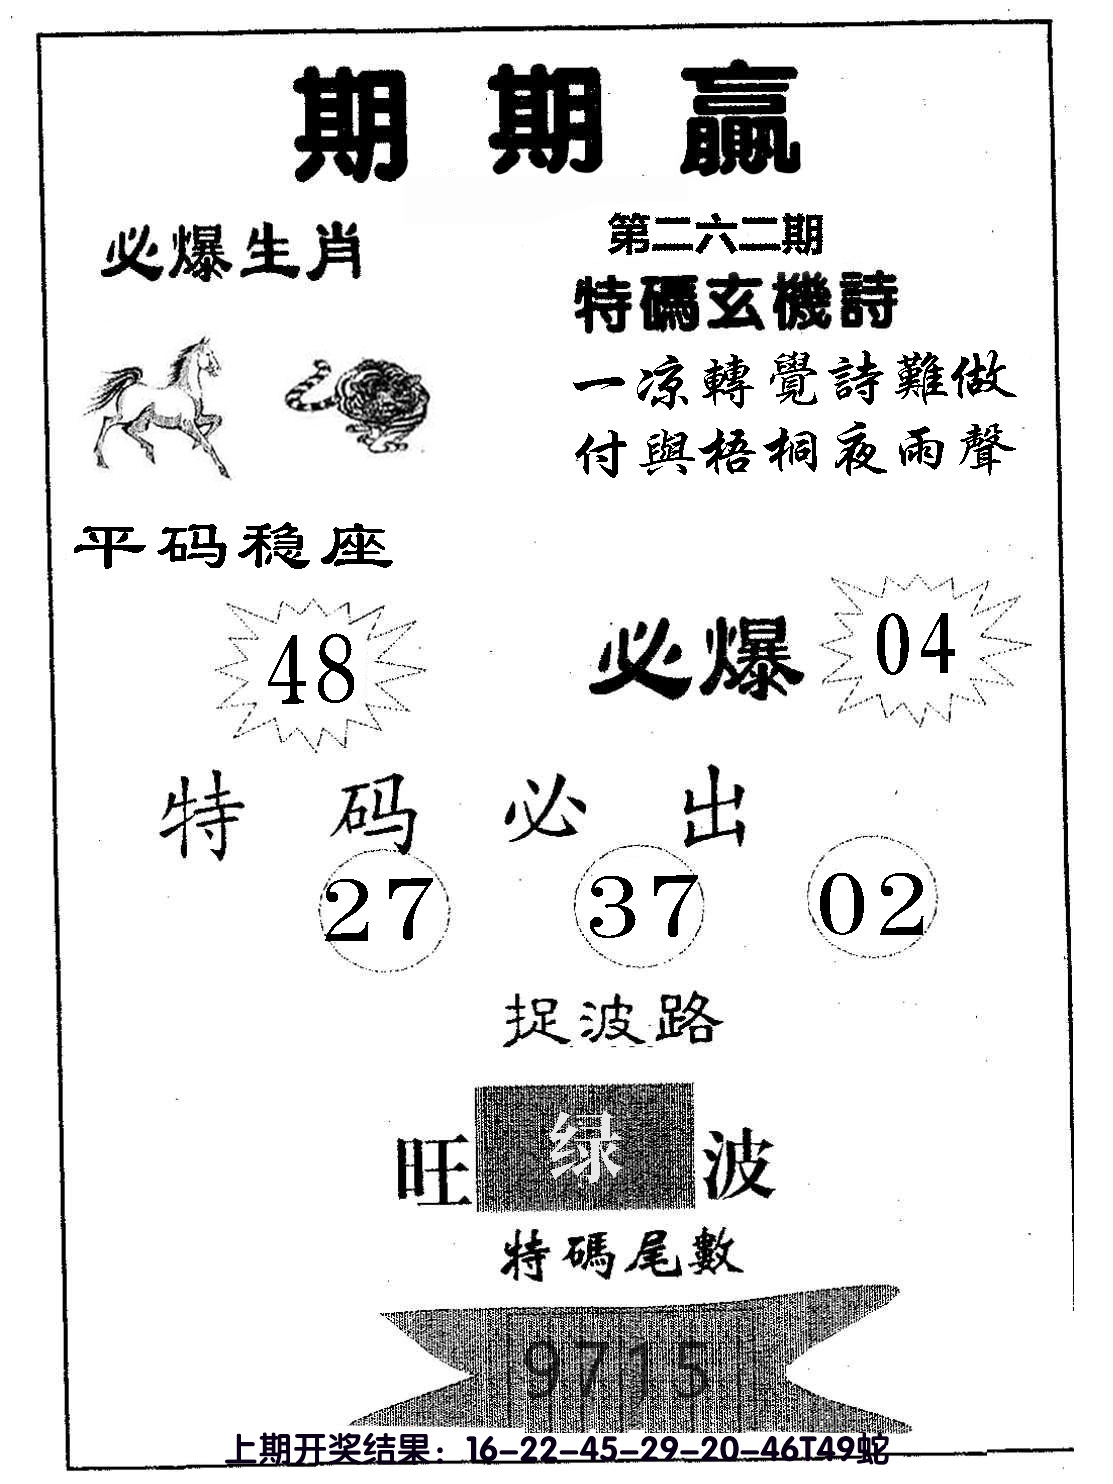 期期贏
必爆生肖
第二六二期
特碼玄機詩
一凉轉覺詩難做
付與梧桐夜雨聲
平码稳座
48
必爆 04
特码必出
27 37 02
捉波路
旺绿波
特碼尾數
9715
上期开奖结果：16-22-45-29-20-46T49蛇